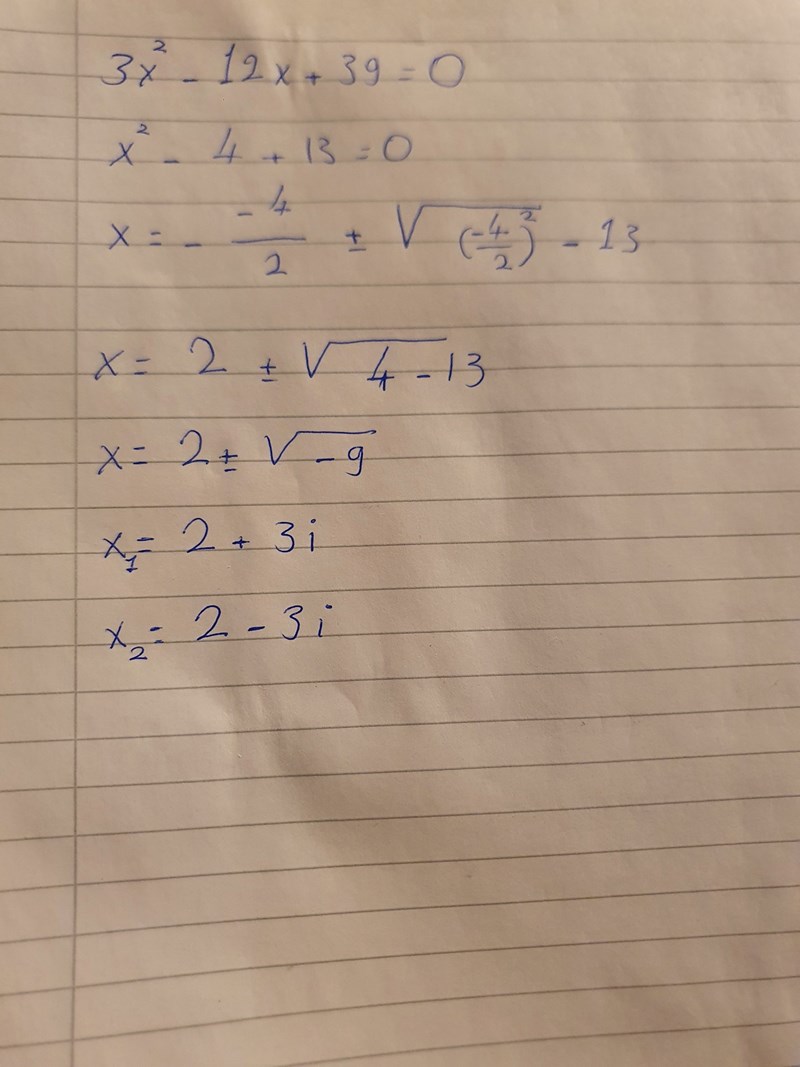 3x² - 12x + 39 = 0
x² - 4 + 13 = 0
x = - -4/2 ± √(-4/2)² - 13
x = 2 ± √4 - 13
x = 2 ± √-9
x₁ = 2 + 3i
x₂ = 2 - 3i